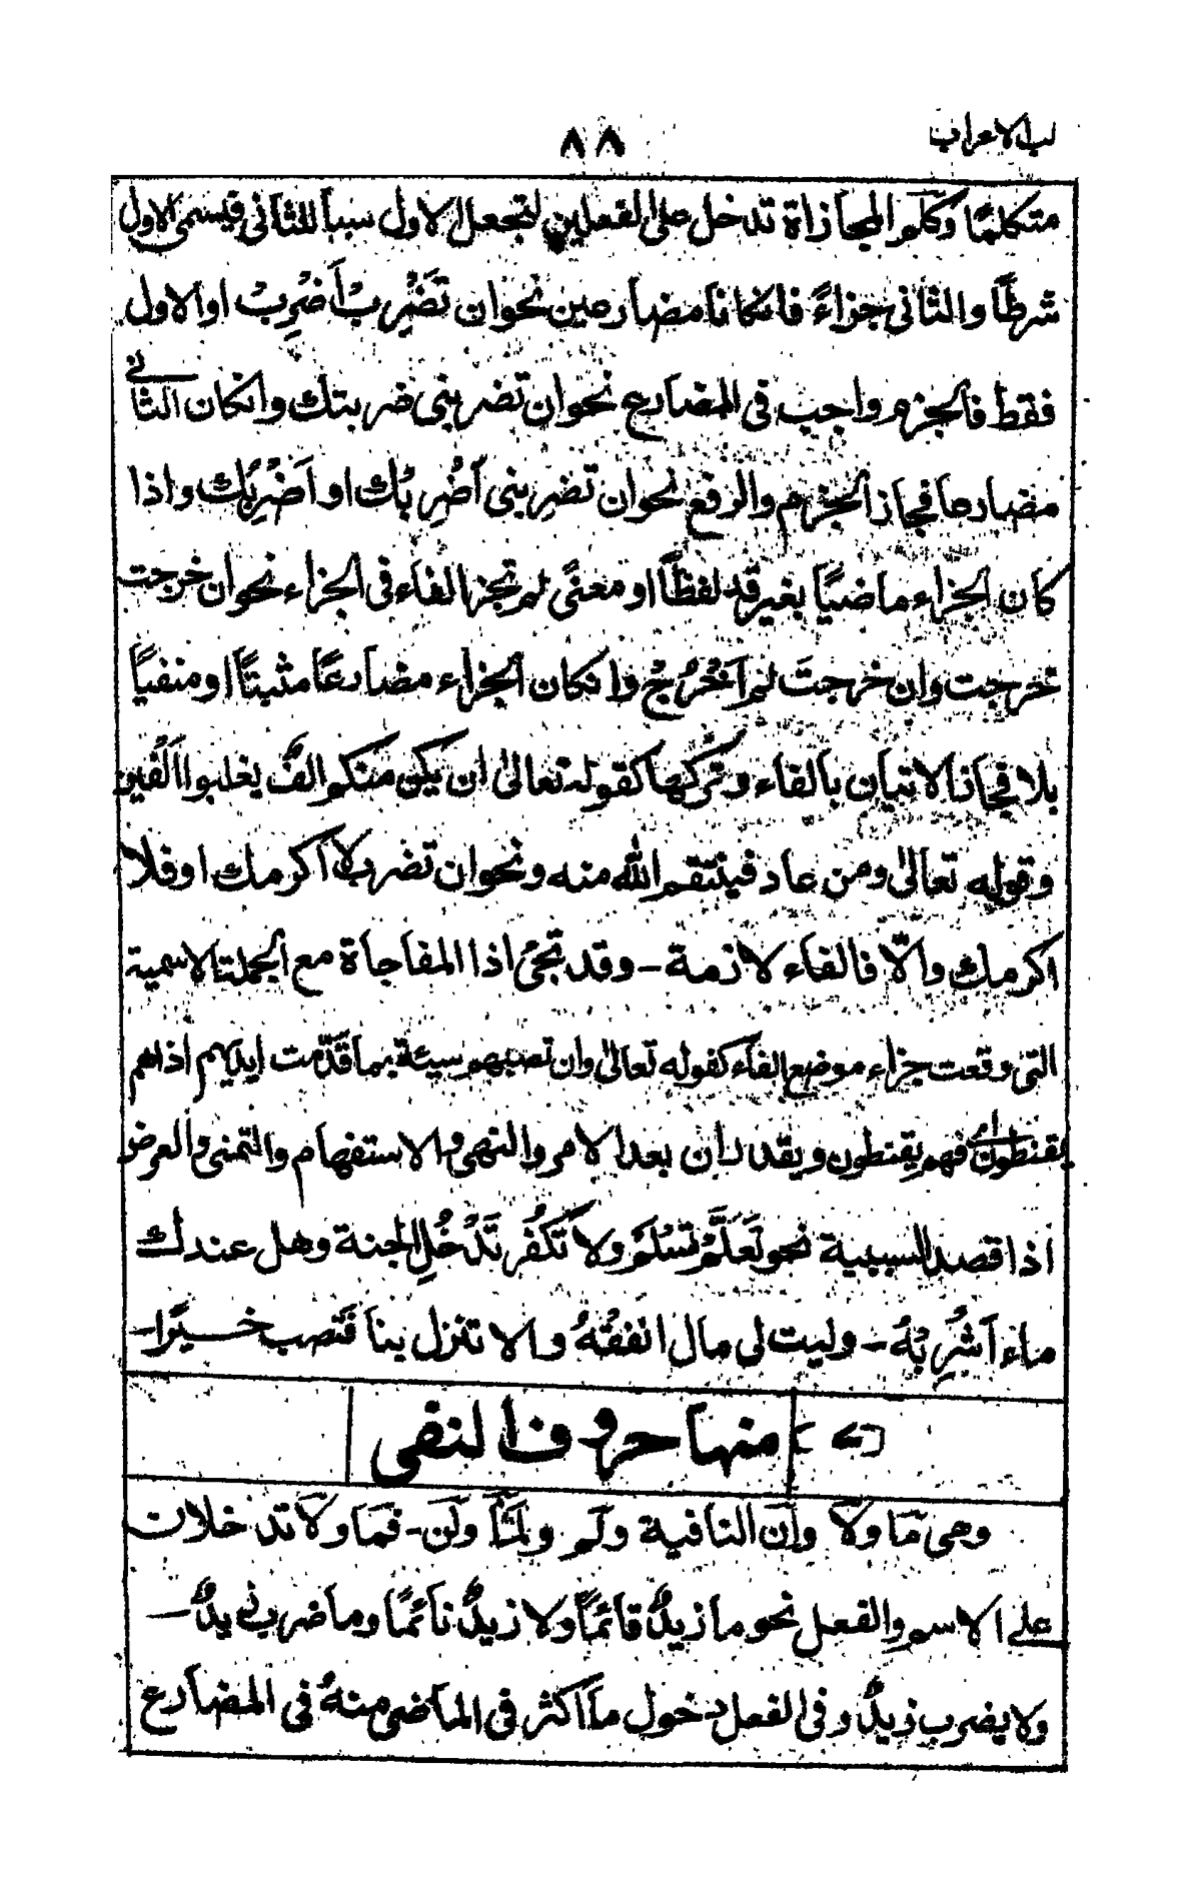 لب الاعراب
٨٨
متكلمًا وكَلِم المجازاة تدخل على الفعلين لتجعل الاول سبباً للثانى فيسمى الاول
شرطًا والثانى جزاءً فانكانا مضارعين نحو ان تَضْرِبْ اَضْرِبْ او الاول
فقط فالجزم واجب فى المضارع نحو ان تضربنى ضربتك وانكان الثانى
مضارعا فجاز الجزم والرفع نحو ان تضربنى اَضْرِبُك او اَضْرِبْك واذا
كان الجزاء ماضيًا بغير قد لفظًا او معنًى لم تجز الفاء فى الجزاء نحو ان خرجت
خرجت وان خرجتَ لم اَخْرُجْ وانكان الجزاء مضارعًا مثبتًا او منفيًا
بلا فجاز الاتيان بالفاء وتركها كقوله تعالىٰ ان يكن منكم الفٌ يغلبوا اَلْفين
وقوله تعالىٰ ومن عاد فينتقم الله منه ونحو ان تضرب لا اكرمك او فلا
اكرمك والّا فالفاء لازمة - وقد تجئ اذا المفاجاة مع الجملة الاسمية
التى وقعت جزاء موضع الفاء كقوله تعالىٰ وان تصبهم سيئة بما قَدَّمت ايديهم اذا هم
يقنطون اى فهم يقنطون ويقدر ان بعد الامر والنهى والاستفهام والتمنى والعرض
اذا قصد السببية نحو تَعَلَّمْ تَسْلَمْ ولا تَكْفُرْ تَدْخُلِ الجنة وهل عندك
ماء اَشْرِبْهُ - وليت لى مال انفقْهُ والا تنزل بنا فتصب خيرًا -
(٧) منها حروف النفى
وهى مَا ولَا واِن النافية ولَم ولَمَّا ولَن - فمَا ولَا تدخلان
على الاسم والفعل نحو ما زيدٌ قائمًا ولا زيدٌ نائمًا وما ضرب زيدٌ -
ولا يضرب زيدٌ وفى الفعل دخول ما اكثر فى الماضى منهُ فى المضارع